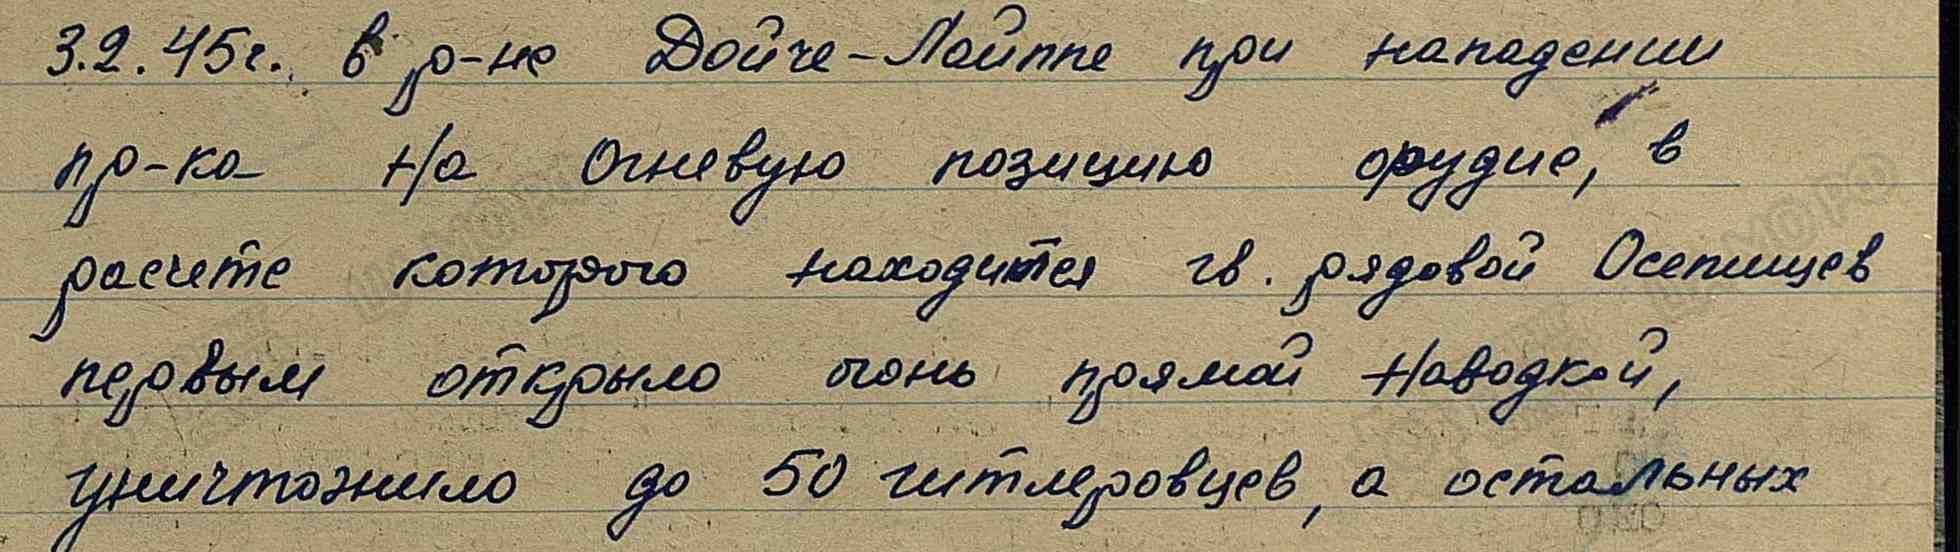 3.2.45г. в р-не Дойче-Лайппе при нападении
пр-ка на огневую позицию орудие, в
расчете которого находится гв. рядовой Осепищев
первым открыло огонь прямой наводкой,
уничтожило до 50 гитлеровцев, а остальных